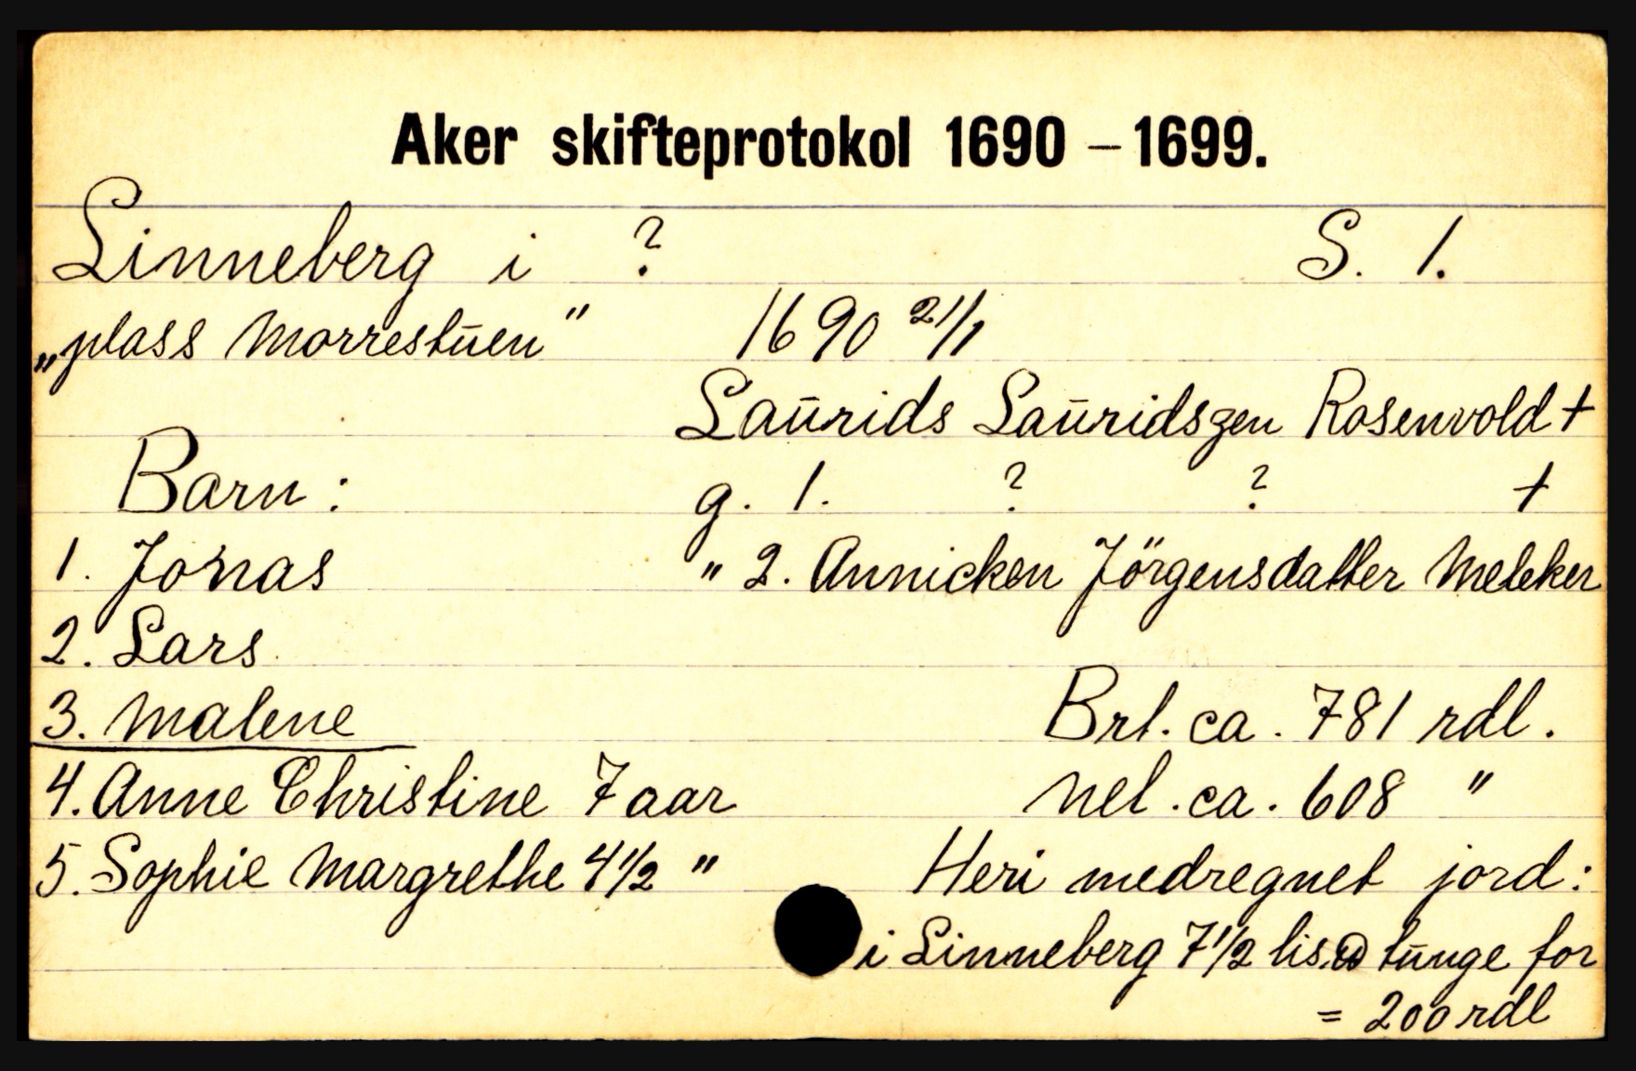 Aker skifteprotokol 1690 – 1699.
Linneberg i ? S. 1.
„plass Morrestūen" 1690 21/1
Laūrids Laūridszen Rosenvold +
Barn: g. 1. ? ? +
1. Jonas " 2. Annicken Jörgensdatter Meleker
2. Lars
3. Malene Brt. ca. 781 rdl.
4. Anne Christine 7 aar Net. ca. 608 "
5. Sophie Margrethe 4 1/2 " Heri medregnet jord:
i Linneberg 7 1/2 lis. tūnge for
= 200 rdl